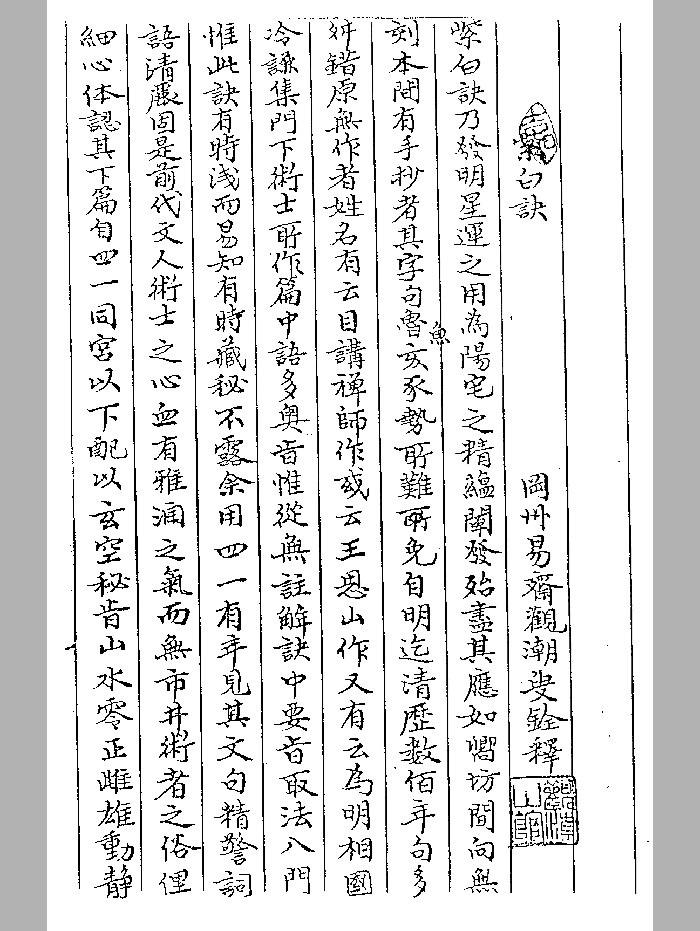 紫白訣
岡州易齋觀潮叟銓釋
紫白訣乃發明星運之用為陽宅之精蘊闡發殆盡其應如嚮坊間向無
刻本間有手抄者其字句魯魚亥豕勢所難免自明迄清歷數佰年句多
舛錯原無作者姓名有云目講禪師作或云王思山作又有云為明相國
冷謙集門下術士所作篇中語多奧旨惟從無註解訣中要旨取法八門
惟此訣有時浅而易知有時藏秘不露余用四一有年見其文句精警詞
語清麗固是前代文人術士之心血有雅潤之氣而無市井術者之俗俚
細心体認其下篇自四一同宮以下配以玄空秘旨山水零正雌雄動静